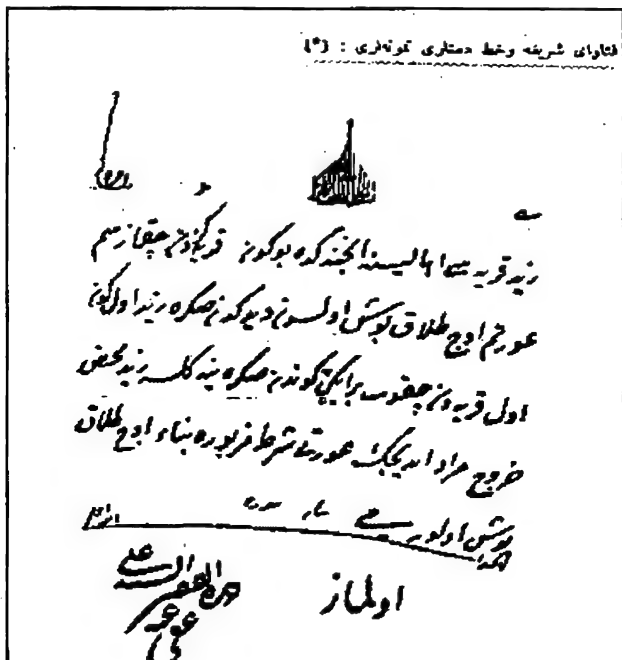 فتاوای شریفه وخط دستاری نمونه‌لری : (*3
زید قریه سی اهالیسندن انجنوب کده بوکون قریه‌کزدن چیقازسم
عورتم اوچ طلاق بوش اولسون دیدکدن صکره زید اول کون
اول قریه‌دن چیقوب برایکی کوندن صکره ینه کلسه زید محض
خروج مراد ایدیجک عورتی شرط مزبوره بناء اوچ طلاق
بوش اولور
اولماز
السید علی
عفی عنه